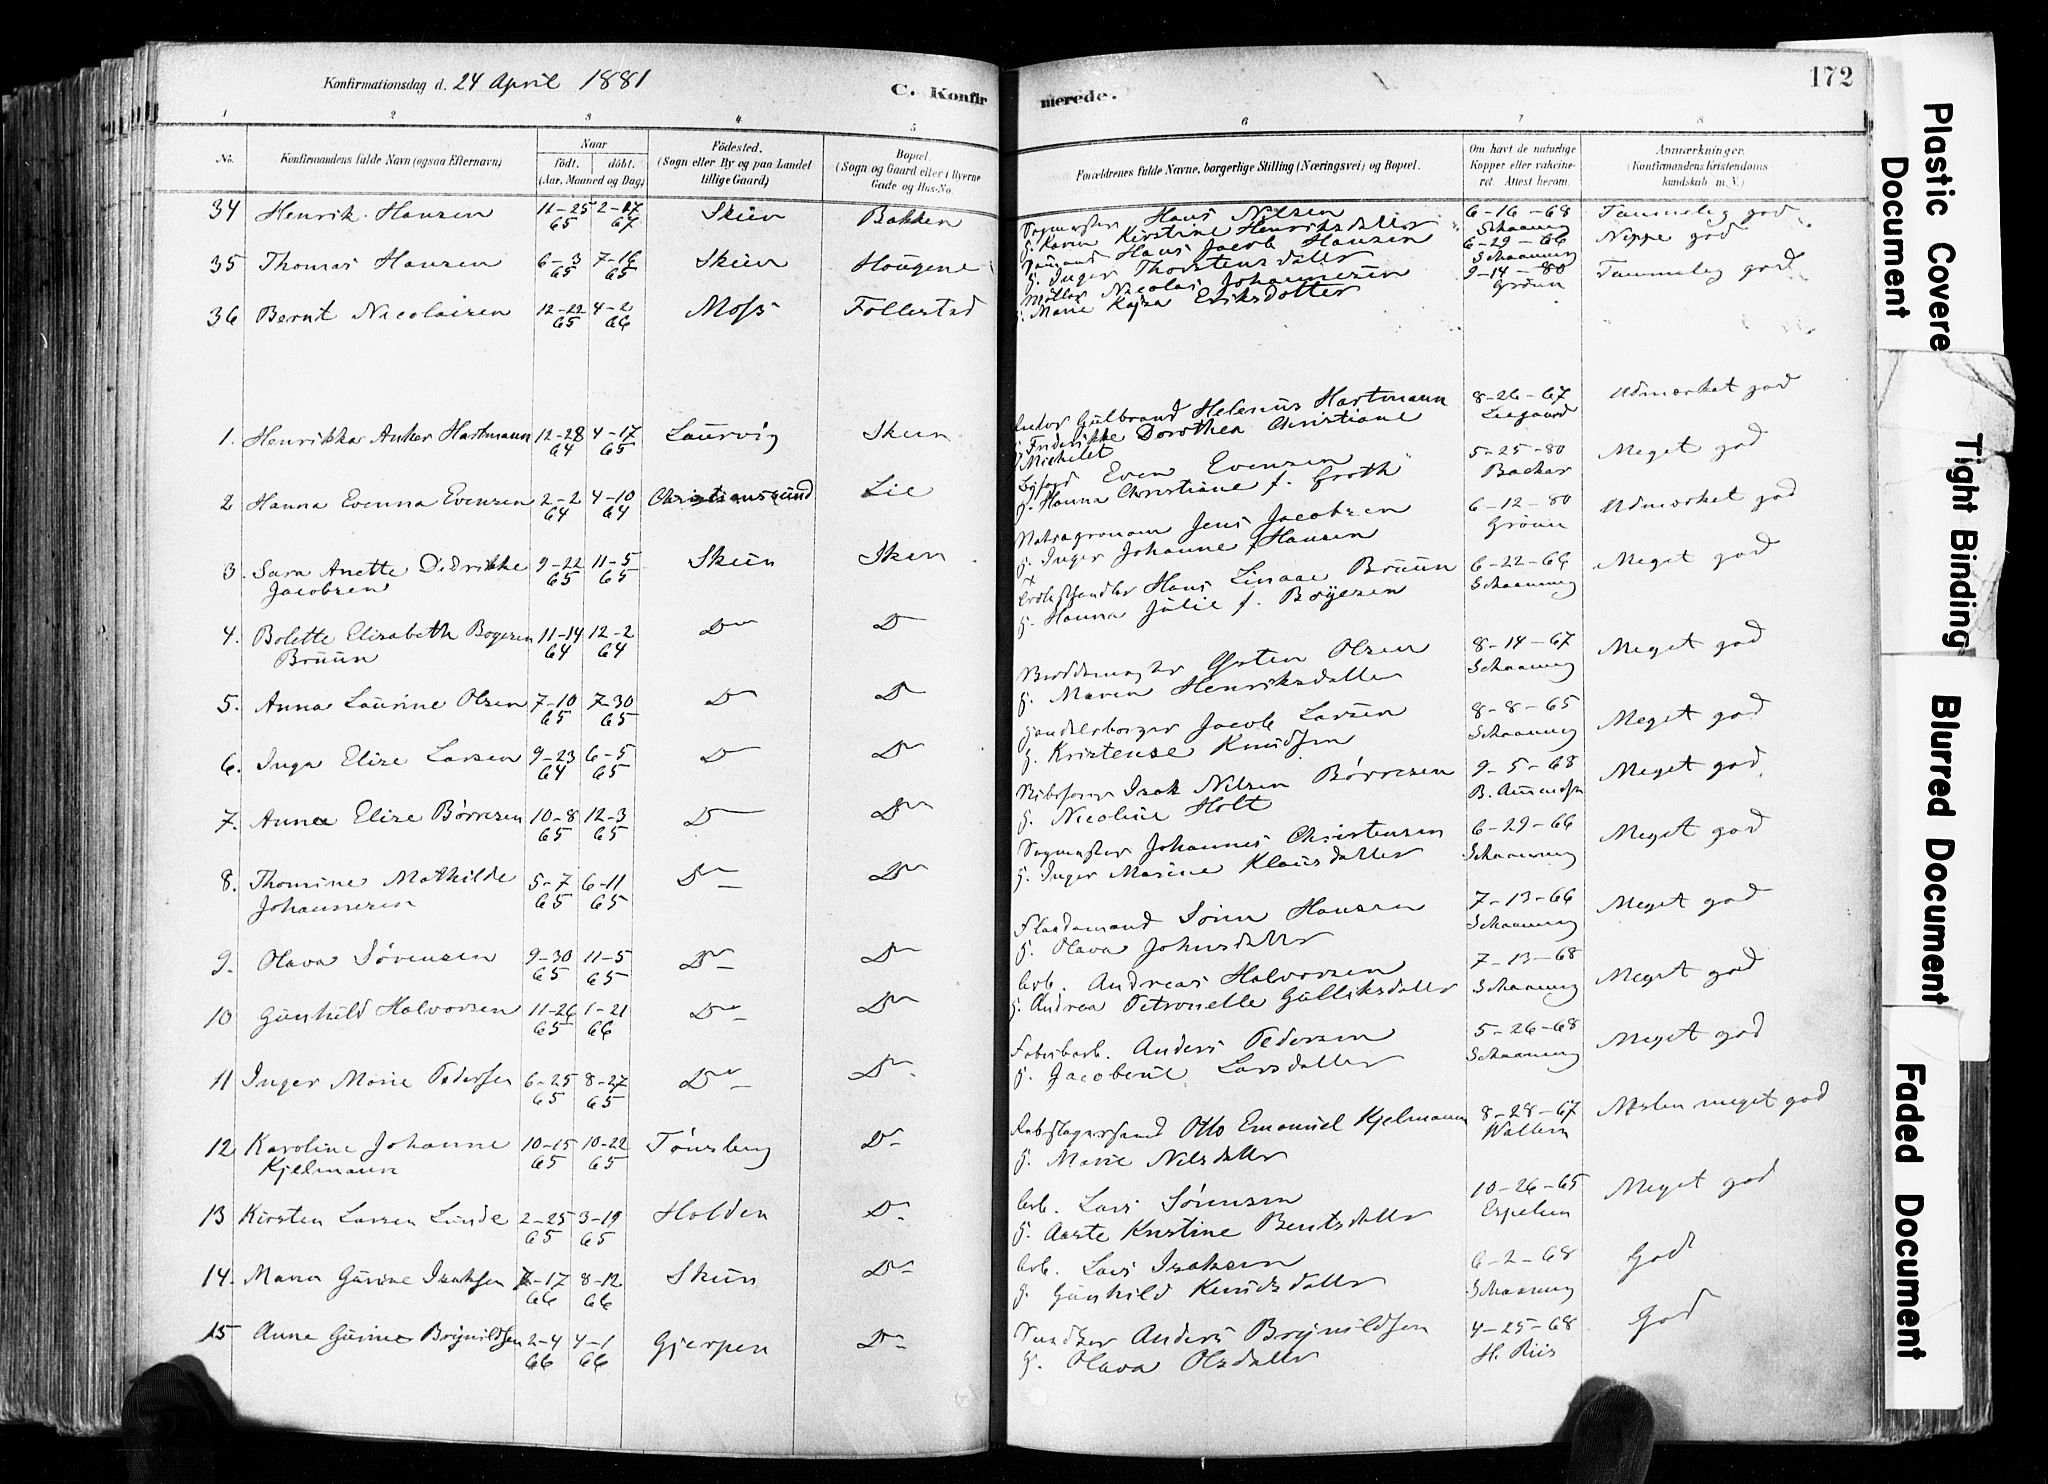 Konfirmationsdag d. 24 April 1881
C. Konfir
merede.
172
1 2 3 4 5 6 7 8
No.
Konfirmandens fulde Navn (ogsaa Efternavn)
Naar
födt. döbt.
(Aar, Maaned og Dag)
Födested.
(Sogn eller By og paa Landet
tillige Gaard)
Bopæl.
(Sogn og Gaard eller i Byerne
Gade og Hus-No.
Forældrenes fulde Navne, borgerlige Stilling (Næringsvei) og Bopæl.
Om havt de naturlige
Kopper eller vakcine-
ret. Attest herom.
Anmærkninger.
(Konfirmandens Kristendoms
kundskab m. V.)
34 Henrik Hansen 11-25 65 2-17 67 Skien Bakken
Hans Nilsen
g. Karen Kirstine Henriksdatter
6-16-68 Schaaning
Temmelig god
35 Thomas Hansen 6-3 65 7-16 65 Skien Hougene
Hans Jacob Hansen
g. Inger Thorstensdatter
6-29-66 Schaaning
Neppe god
36 Bernt Nicolaisen 12-22 65 4-2 66 Moss Follestad
Møller Nicolai Johannesen
g. Marie Kajsa Eriksdotter
9-14-80 Grönn
Temmelig god
1. Henrikka Anker Hartmann 12-28 64 4-17 65 Laurvig Skien
Gulbrand Helenius Hartmann
g. Frederikke Dorothea Christiane
Michelet
8-26-67
Udmærket god
2 Hanna Evenna Evensen 2-2 64 4-10 64 Christianssund Lie
Even Evensen
g. Hanna Christiane f. Groth
5-25-80 Backer
Meget god
3. Sara Anette Didrikke 9-22 65 11-5 65 Skien Skien
Jacobsen
Jens Jacobsen
g. Inger Johanne Hansen
6-12-80 Grönn
Udmærket god
4. Bolette Elisabeth Boyesen 11-14 64 12-2 64 Do D
Bruun
Hans Linaae Bruun
g. Hanna Julie f. Boyesen
6-22-66 Schaaning
Meget god
5. Anna Laurine Olsen 7-10 65 7-30 65 D D
Østen Olsen
g. Maren Henriksdatter
8-14-67 Schaaning
Meget god
6. Inga Elise Larsen 9-23 64 6-5 65 D Do
Handelsborger Jacob Larsen
g. Kristense Knudsen
8-8-65 Schaaning
Meget god
7. Anna Elise Børresen 10-8 65 12-3 65 D Do
Isak Nilsen Børresen
g. Nicoline Holt
9-5-68 B. Amundsen
Meget god
8. Thomine Mathilde 5-7 65 6-11 65 Do Do
Johannesen
Sagmester Johannes Christensen
g. Inger Marine Klausdatter
6-29-66 Schaaning
Meget god
9. Olava Sørensen 9-30 65 11-5 65 Do Do
Flaadamand Søren Hansen
g. Olava Johnsdatter
7-13-66 Schaaning
Meget god
10 Gunhild Halvorsen 11-26 65 1-21 66 Do Do
Arb. Andreas Halvorsen
g. Andrea Petronelle Gulliksdatter
7-13-68 Schaaning
Meget god
11 Inger Marie Pedersen 6-25 65 8-27 65 Do Do
Fabrikarb. Anders Pedersen
g. Jacobine Larsdatter
5-26-68 Schaaning
Meget god
12 Karoline Johanne 10-15 65 10-22 65 Tönsberg Do
Kjelmann
Rebslagersvend Otto Emanuel Kjelmann
g. Marie Nilsdatter
8-28-67
Næsten meget god
13 Kirsten Larsen Lunde 2-25 65 3-19 65 Holden Do
Arb. Lars Sørensen
g. Aaste Kristine Bentsdatter
10-26-65 Espelien
Meget god
14. Maren Gurine Isaksen 7-17 66 8-12 66 Skien Do
Arb. Lars Isaksen
g. Gunhild Knudsdatter
6-2-68 Schaaning
God
15 Anne Gurine Brynildsen 2-4 66 4-1 66 Gjerpen Do
Snedker Anders Brynildsen
g. Olava Olsdatter
4-25-68 H. Riis
God
Plastic Covere
Document
Tight Binding
Blurred Document
Faded Document